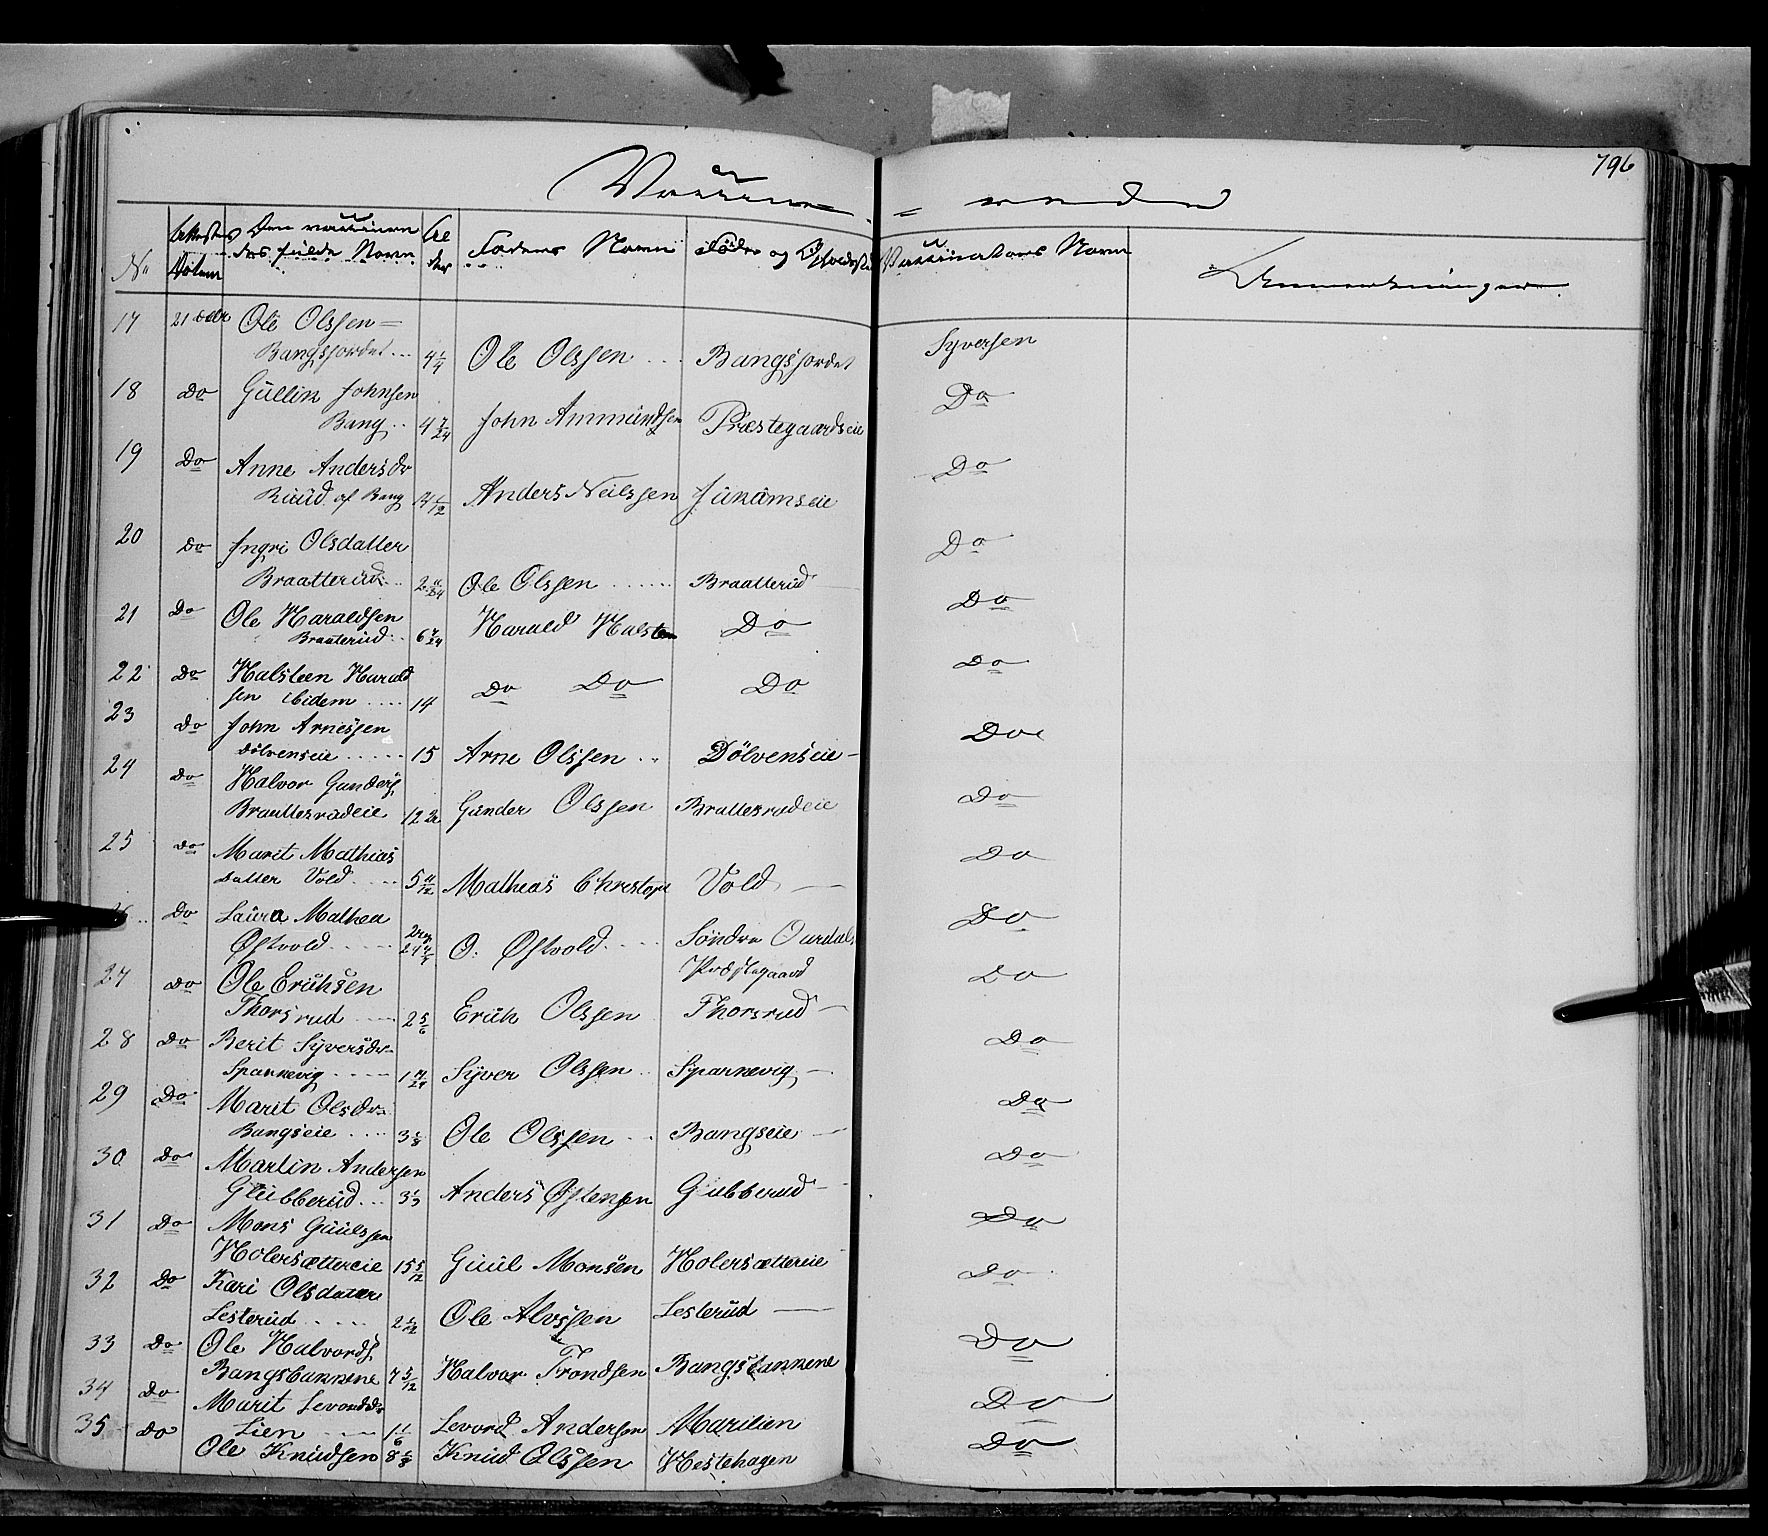 796
Vaccine = rede
No
Attestens Datum
Den vaccinerede fulde Navn
Alder
Faderens Navn
Føde og Opholdssted
Vaccinatørs Navn
Anmærkninger
17 21 Octbr Ole Olssen =
Bangsjordet ... 4 1/4 Ole Olssen ... Bangsjordet Syversen
18 Do Gullik Johnsen
Bang .. 4 7/24 John Ammundsen Præstegaardseie Do
19 Do Anne Andersdr
Ruud af Bang 1/12 Anders Neilssen Jukamseie Do
20 Do Ingri Olsdatter
Braatterud ... 2 11/24 Ole Olssen ...... Braatterud Do
21 Do Ole Haraldsen
Braaterud .. 6 7/24 Harald Halsten Do Do
22 Do Halsteen Harald
sen ibidem .... 14 Do Do Do Do
23 Do John Arnessen
Dölvenseie ..... 15 Arne Olssen .. Dölvenseie - Do
24 Do Halvor Gunders
Braattesrudeie 12 Gunder Olssen Brattesrudeie Do
25 Do Marit Mathias
Datter Vold .... 5 11/12 Matheas Christoph Vold Do
26 .. Do Laura Mathea
Østvold ..... O. Østvold .... Søndre Ourdals Præstegaard Do
27 Do Ole Eriksen
Thorsrud 2 5/6 Erich Olssen Thorsrud - Do
28 Do Berit Syversdr
Sparrevig ---- 1 7/24 Syver Olssen .. Sparrevig - Do
29 Do Marit Olsdr
Bangseie .... 3 1/8 Ole Olssen .. Bangseie - Do
30 Do Martin Andersen
Glubberud ... 3 1/3 Anders Østensen Gubberud - Do
31 Do Mons Guulssen
Holersætereie 15 5/12 Guul Monsen Holersættereie Do
32 Do Kari Olsdatter
Lesterud ..... 2 1/12 Ole Alvssen Lesterud Do
33 Do Ole Halvords
Bangsbakkene 7 5/12 Halvor Trondsen Bangsbakkene Do
34 Do Marit Levordsdr
Lien 1 1/6 Levord Andersen Marilien Do
35 Do Ole Knudsen 8 Knud Olssen Hestehagen Do